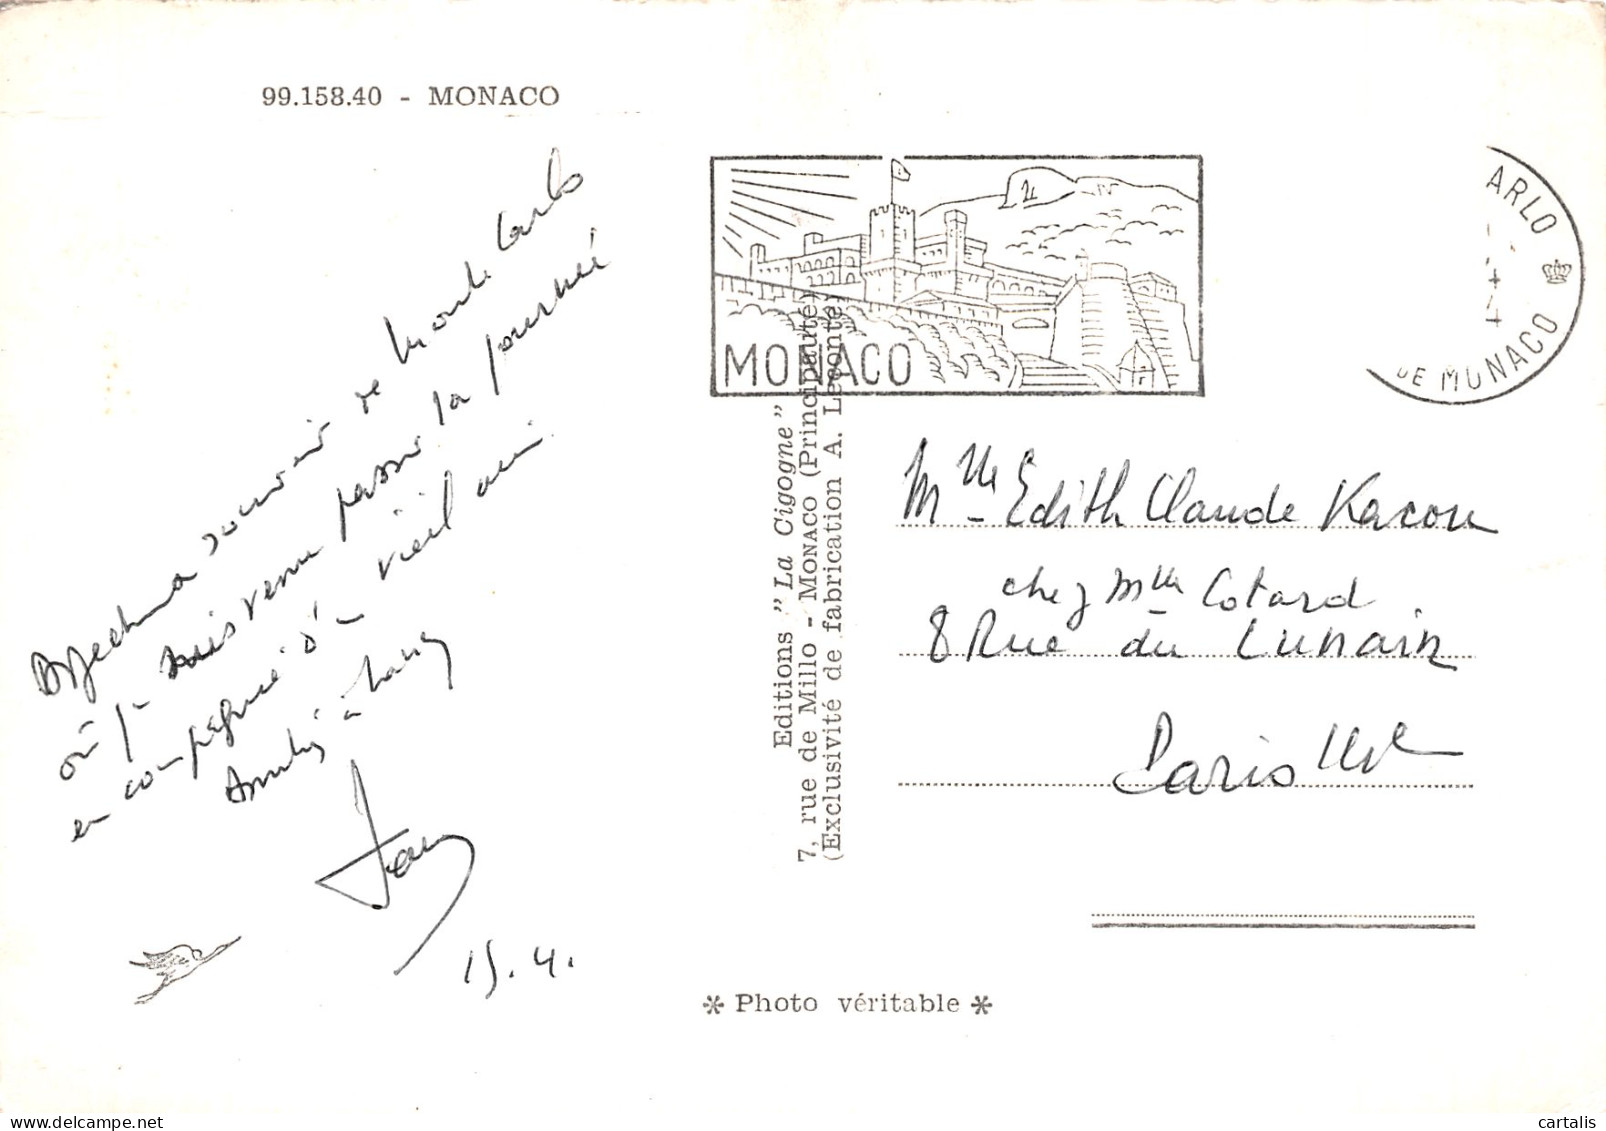 99.158.40 - MONACO
souvenir de Monte Carlo
où je suis venu passer la journée
en compagnie d'un vieil ami
Amitiés à
15.4.
MONACO
ARLO
DE MONACO
Editions "La Cigogne"
7, rue de Millo - MONACO (Principauté)
(Exclusivité de fabrication A. Leconte)
Mlle Edith Claude
chez Mlle Cotard
8 Rue du Lunain
Paris
* Photo véritable *
cartalis